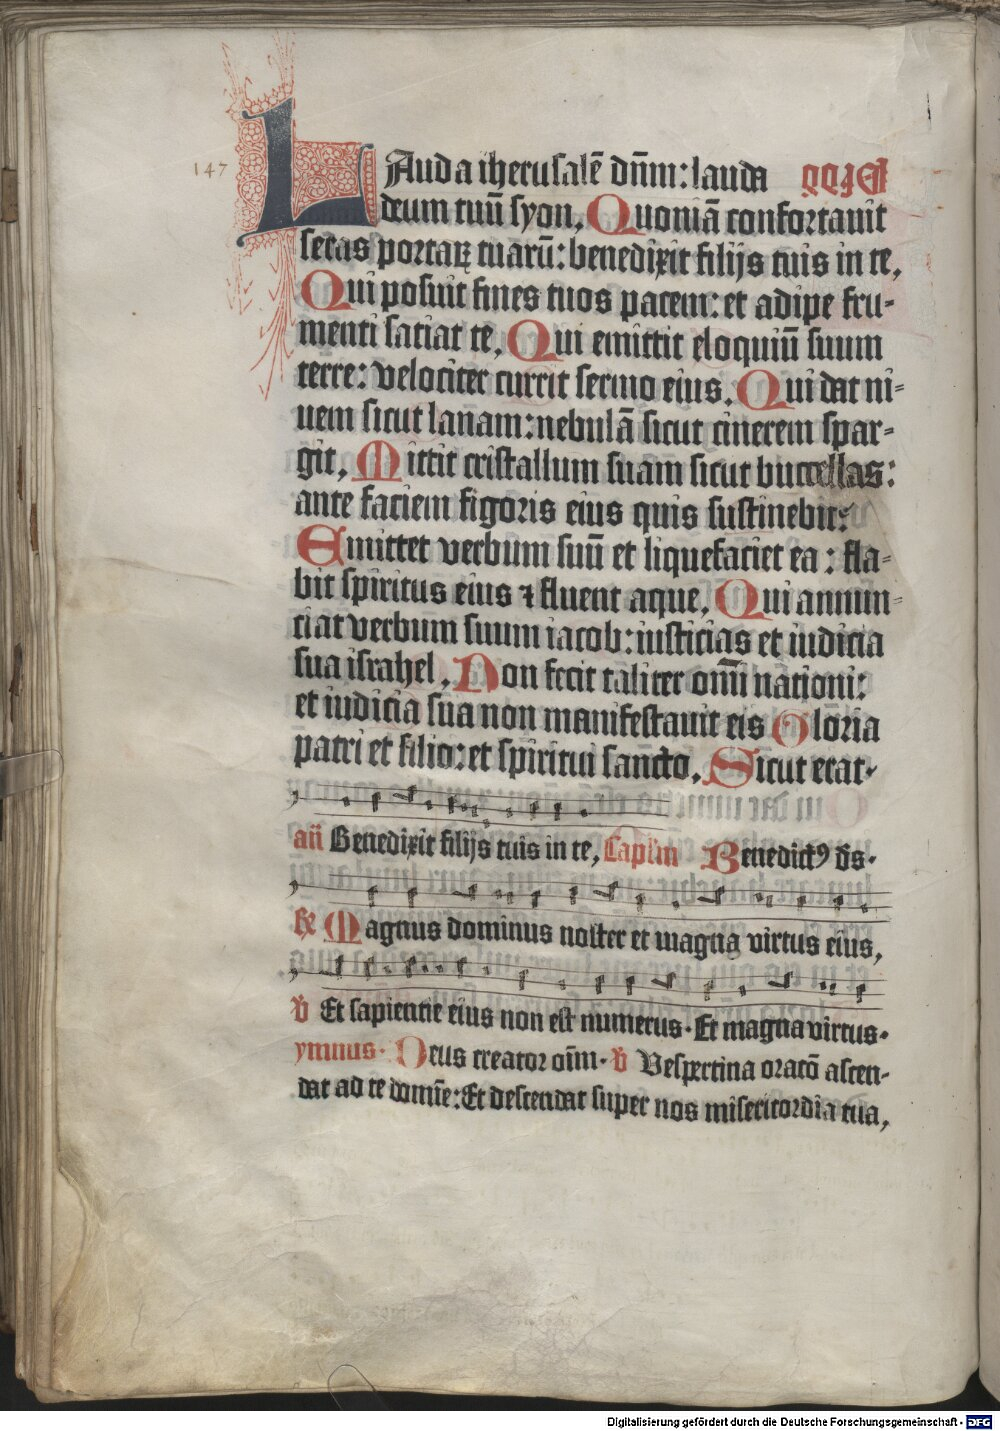 147
LAuda iherusalē dn̄m: lauda
deum tuū syon, Quoniā confortauit
seras portaꝝ tuarū: benedixit filijs tuis in te,
Qui posuit fines tuos pacem: et adipe fru-
menti satiat te, Qui emittit eloquiū suum
terre: velociter currit sermo eius. Qui dat ni-
uem sicut lanam: nebulā sicut cinerem spar-
git, Mittit cristallum suam sicut buccellas:
ante faciem frigoris eius quis sustinebit:
Emittet verbum suū et liquefaciet ea: fla-
bit spiritus eius ⁊ fluent aque, Qui annun-
ciat verbum suum iacob: iusticias et iudicia
sua israhel, Non fecit taliter om̄i nationi:
et iudicia sua non manifestauit eis Gloria
patri et filio: et spiritui sancto, Sicut erat.
añ Benedixit filijs tuis in te, Capl'm Benedictꝰ ds̄.
R̸ Magnus dominus noster et magna virtus eius,
v̄ Et sapientie eius non est numerus. Et magna virtus.
ymnus. Deus creator oīm. v̄ Vespertina oracō ascen-
dat ad te domīe: Et descendat super nos misericordia tua,
Digitalisierung gefördert durch die Deutsche Forschungsgemeinschaft - DFG